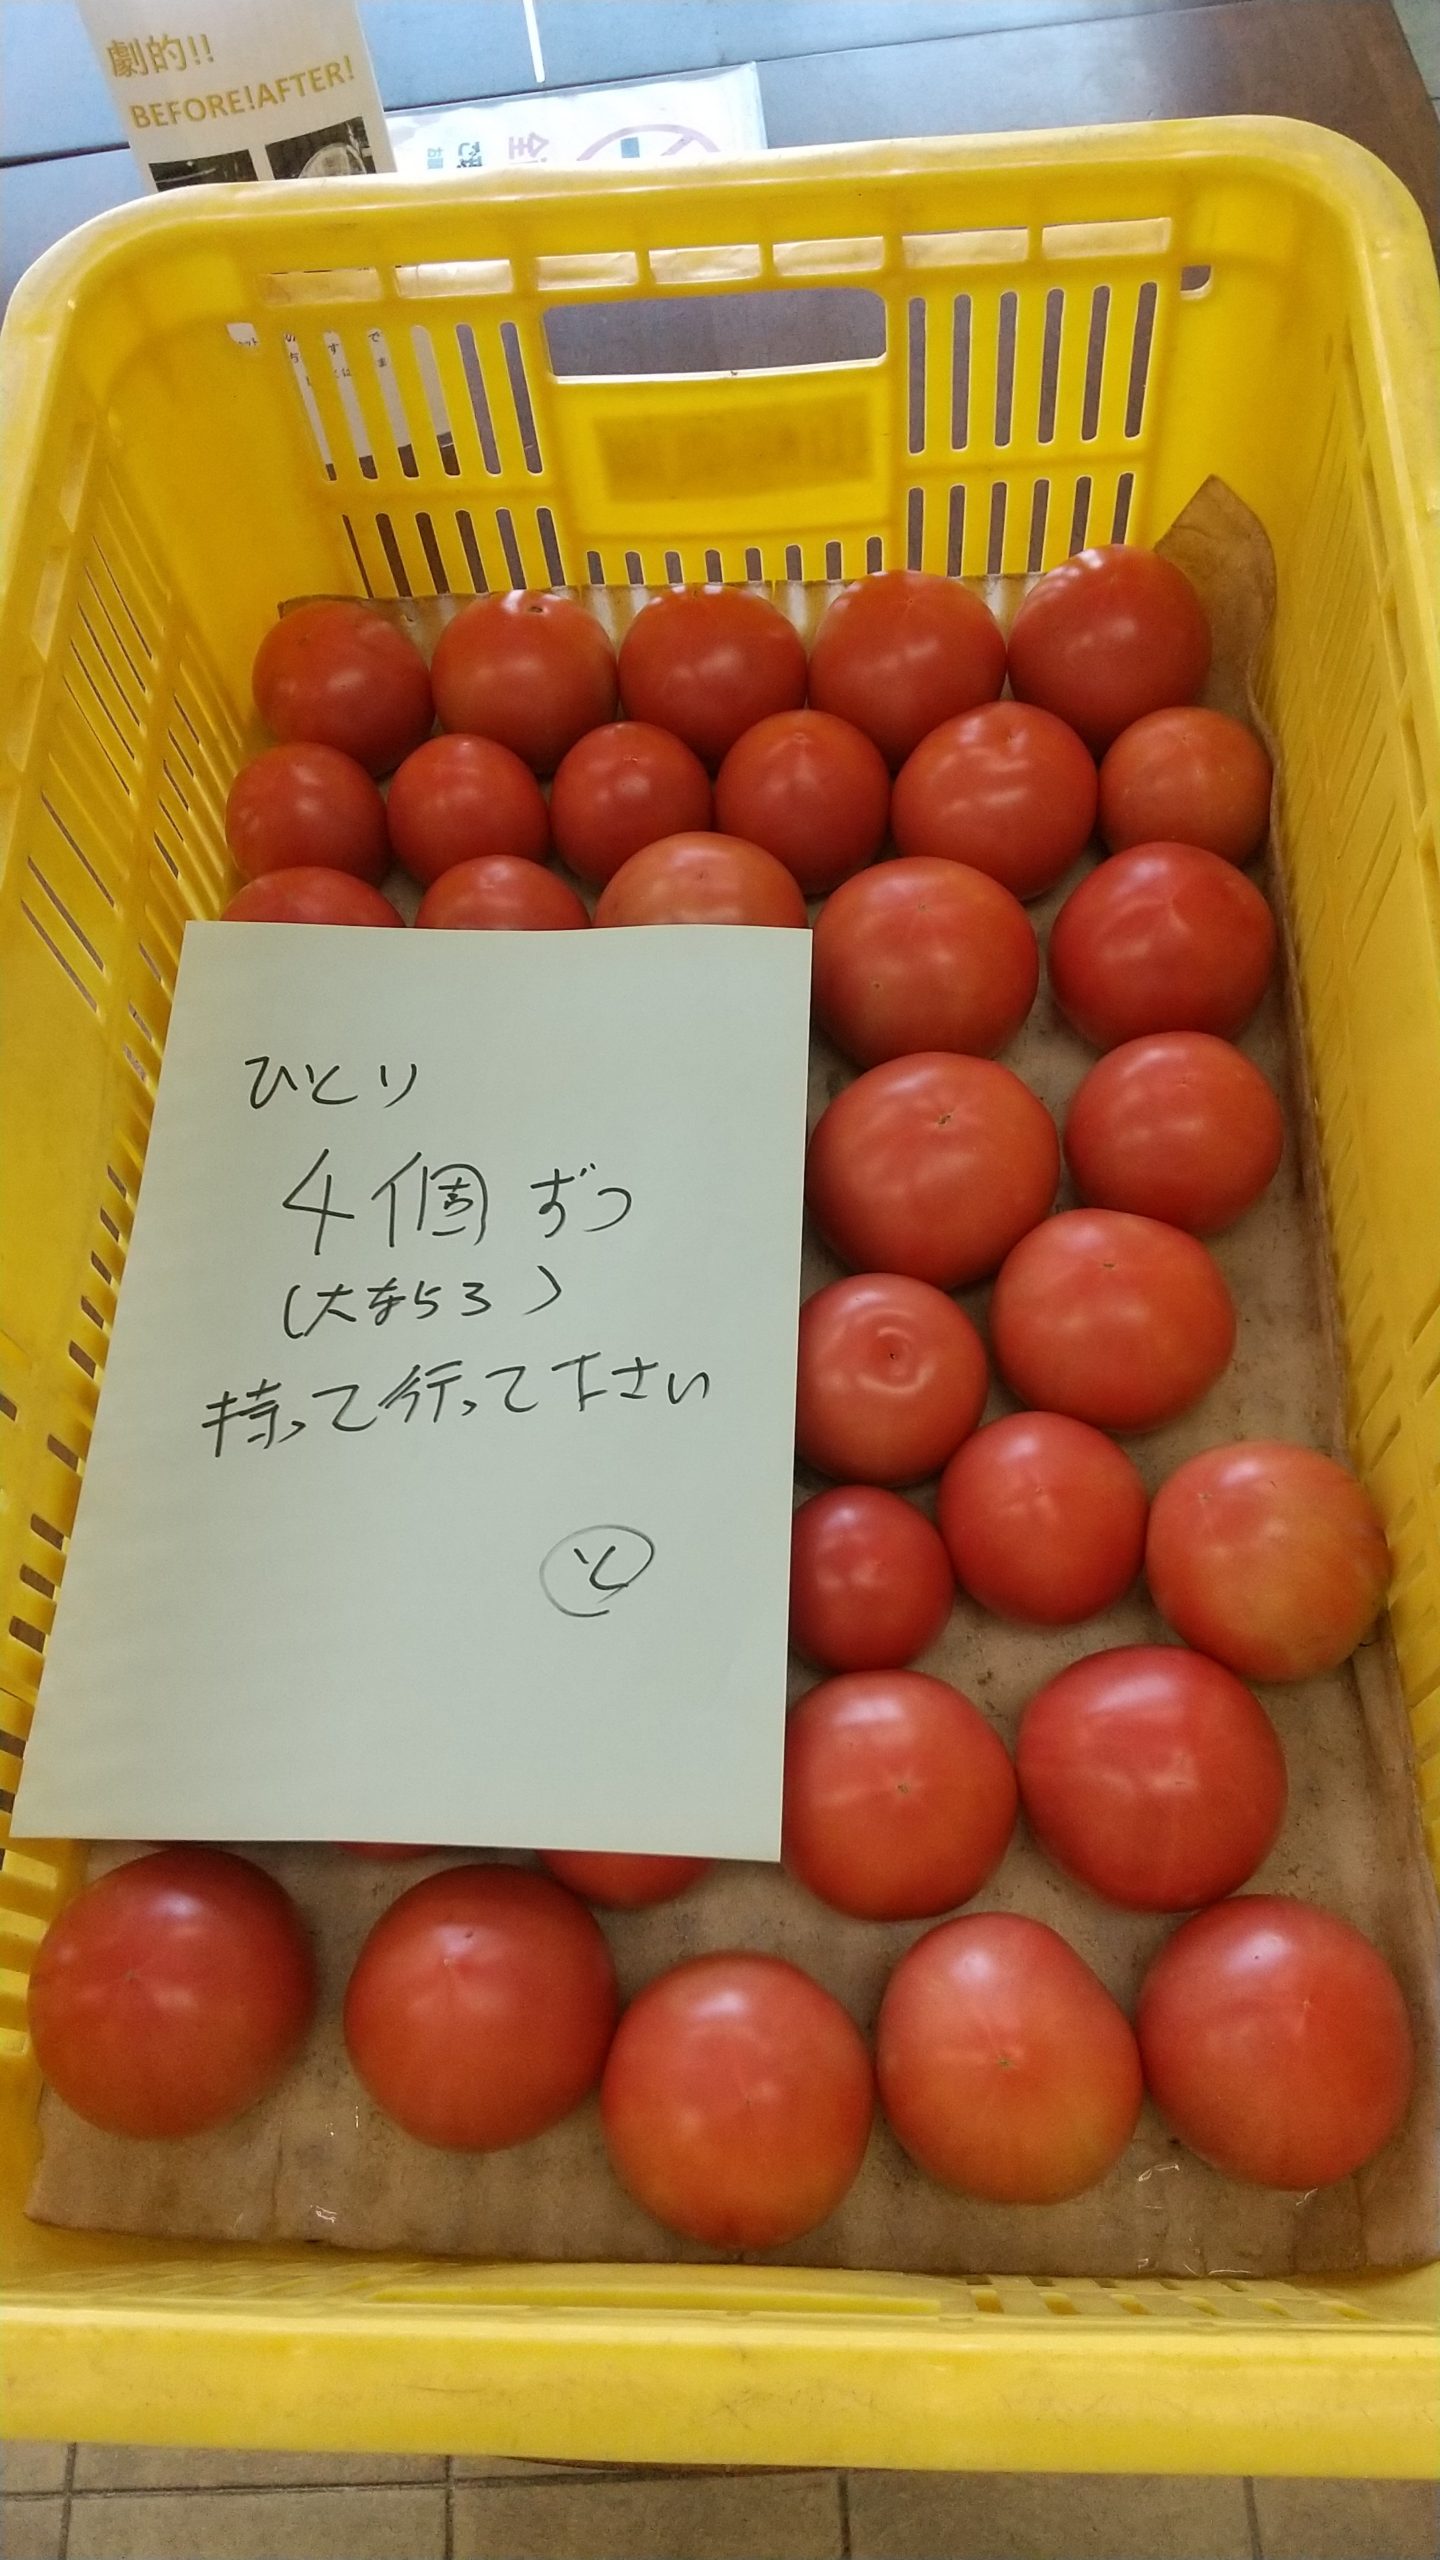 劇的!!
BEFORE!AFTER!
ひとり
4個ずつ
(大なら3)
持って行って下さい
と